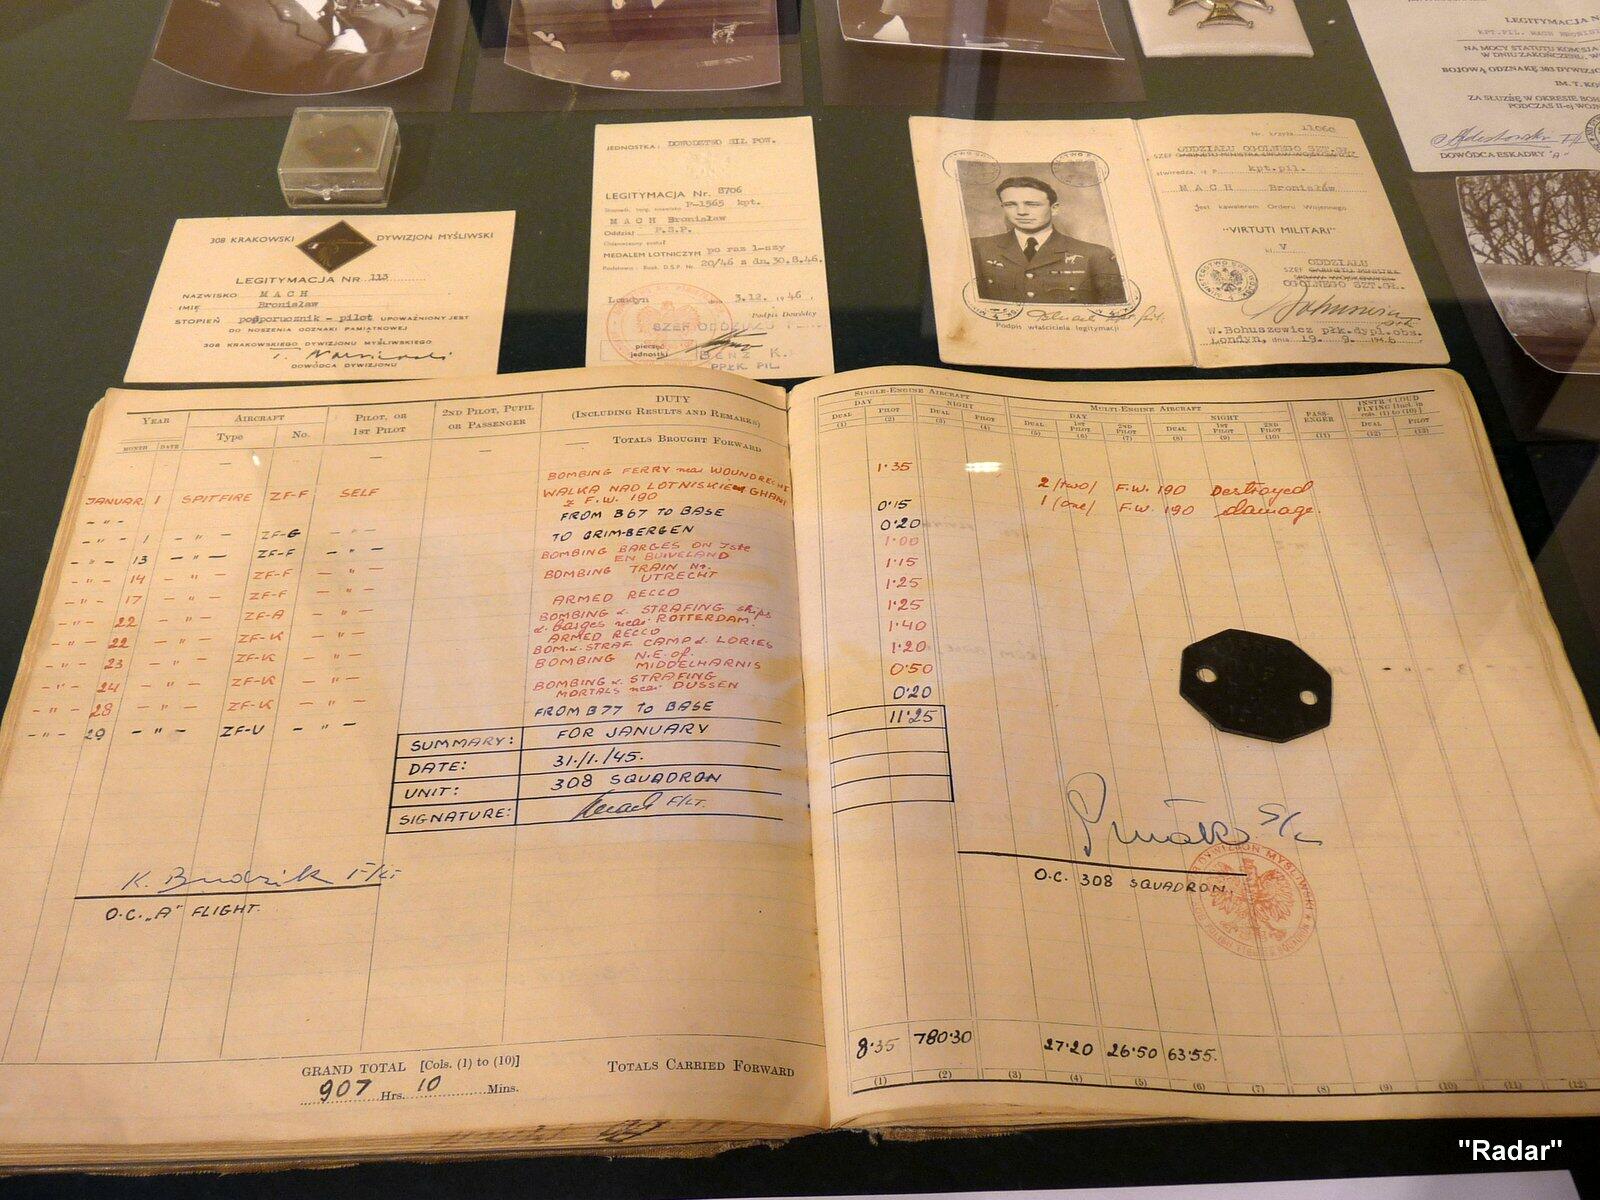 308 KRAKOWSKI DYWIZJON MYŚLIWSKI
LEGITYMACJA NR 113
NAZWISKO MACH
IMIĘ Bronisław
STOPIEŃ podporucznik - pilot UPOWAŻNIONY JEST
DO NOSZENIA ODZNAKI PAMIĄTKOWEJ
308 KRAKOWSKIEGO DYWIZJONU MYŚLIWSKIEGO
DOWÓDCA DYWIZJONU
JEDNOSTKA: DOWÓDZTWO SIL POW.
LEGITYMACJA Nr. 8706
P-1565 kpt.
MACH Bronisław
Oddział P.S.P.
MEDALEM LOTNICZYM po raz 1-szy
20/46 z dn. 30.8.46.
Londyn 3.12. 1946.
Podpis Dowódcy
SZEF ODDZIAŁU
pieczęć
jednostki
BENZ K.
PPŁK PIL.
Podpis właściciela legitymacji
Nr. krzyża 11060
ODDZIAŁU OGÓLNEGO SZT.GŁ.
SZEF
kpt.pil.
MACH Bronisław
jest kawalerem Orderu Wojennego
"VIRTUTI MILITARI"
kl. V
ODDZIAŁU
SZEF GABINETU MINISTRA
OGÓLNEGO SZT.GŁ.
W.Bohuszewicz płk.dypl.obs.
Londyn, dnia 19. 9. 1946
LEGITYMACJA N
KPT.PIL. MACH BRONIS
NA MOCY STATUTU KOMISJA
W DNIU ZAKOŃCZENIA
BOJOWĄ ODZNAKĘ 303 DYWIZJO
IM. T. KO
ZA SŁUŻBĘ W OKRESIE BOJ
PODCZAS II-ej WOJN
DOWÓDCA ESKADRY "A"
YEAR AIRCRAFT PILOT, OR 1ST PILOT 2ND PILOT, PUPIL OR PASSENGER DUTY (INCLUDING RESULTS AND REMARKS)
MONTH DATE Type No.
TOTALS BROUGHT FORWARD
SINGLE-ENGINE AIRCRAFT MULTI-ENGINE AIRCRAFT PASSENGER INSTR/CLOUD FLYING [Incl. in cols. (1) to (10)]
DAY NIGHT DAY NIGHT
DUAL PILOT DUAL PILOT DUAL 1ST PILOT 2ND PILOT DUAL 1ST PILOT 2ND PILOT DUAL PILOT
(1) (2) (3) (4) (5) (6) (7) (8) (9) (10) (11) (12) (13)
BOMBING FERRY near WOUNDRECHT 1·35
JANUAR. 1 SPITFIRE ZF-F SELF WALKA NAD LOTNISKIEM GHANT 2 (two) F.W. 190 Destroyed
z F.W. 190 1 (one) F.W. 190 damage.
- " - FROM B67 TO BASE 0·15
- " - 1 - " - ZF-G TO GRIMBERGEN 0·20
- " - 13 - " - ZF-F - " - BOMBING BARGES ON Jste 1·00
EN BUIVELAND
- " - 14 - " - ZF-F - " - BOMBING TRAIN Nr. 1·15
UTRECHT
- " - 17 - " - ZF-F - " - ARMED RECCO 1·25
- " - 22 - " - ZF-A - " - BOMBING & STRAFING ships 1·25
& barges near ROTTERDAM
- " - 22 - " - ZF-K - " - ARMED RECCO 1·40
- " - 23 - " - ZF-K - " - BOM.& STRAF. CAMP & LORIES 1·20
- " - 24 - " - ZF-K - " - BOMBING N.E. of 0·50
MIDDELHARNIS
- " - 28 - " - ZF-K - " - BOMBING & STRAFING
MORTALS near DUSSEN
- " - 29 - " - ZF-U - " - FROM B77 TO BASE 0·20
11·25
SUMMARY: FOR JANUARY
DATE: 31./1./45.
UNIT: 308 SQUADRON
SIGNATURE: F/LT.
K. Budzik F/Lt
O.C. „A" FLIGHT.
S/L
O.C. 308 SQUADRON.
DYWIZJON MYŚLIWSKI
GRAND TOTAL [Cols. (1) to (10)]
907 Hrs. 10 Mins.
TOTALS CARRIED FORWARD
8·35 780·30 27·20 26·50 63·55.
(1) (2) (3) (4) (5) (6) (7) (8) (9) (10) (11) (12)
"Radar"